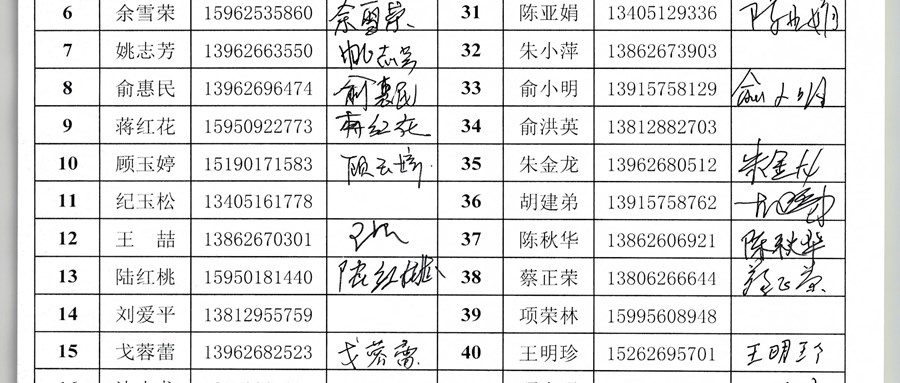 6 余雪荣 15962535860 余雪荣 31 陈亚娟 13405129336 陈亚娟
7 姚志芳 13962663550 姚志芳 32 朱小萍 13862673903
8 俞惠民 13962696474 俞惠民 33 俞小明 13915758129 俞小明
9 蒋红花 15950922773 蒋红花 34 俞洪英 13812882703
10 顾玉婷 15190171583 顾玉婷 35 朱金龙 13962680512 朱金龙
11 纪玉松 13405161778 36 胡建弟 13915758762
12 王喆 13862670301 王喆 37 陈秋华 13862606921 陈秋华
13 陆红桃 15950181440 陆红桃 38 蔡正荣 13806266644 蔡正荣
14 刘爱平 13812955759 39 项荣林 15995608948
15 戈蓉蕾 13962682523 戈蓉蕾 40 王明珍 15262695701 王明珍